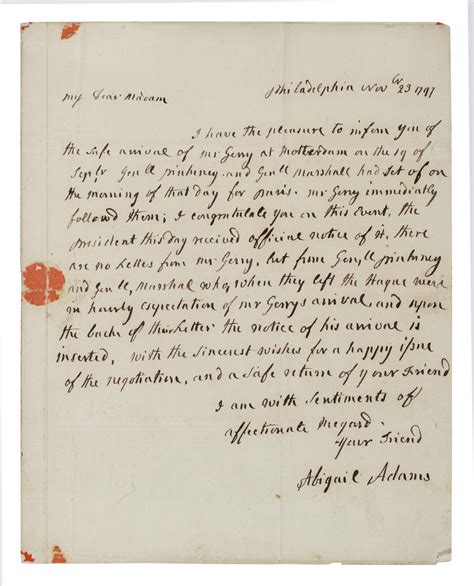 Philadelphia Novbr 23 1797
my Dear Madam
I have the pleasure to inform you of
the safe arrival of mr Gerry at Rotterdam on the 19 of
Sepbr Genll pinkney and Genll Marshall had set of on
the morning of that day for paris. mr Gerry immediatly
followd them; I congratulate you on this Event, the
president this day received official notice of it. there
are no Letters from mr Gerry, but from Genll pinkney
and Genll Marshal who, when they left the Hague were
in hourly expectation of mr Gerrys arrival, and upon
the back of their Letter the notice of his arrival is
inserted, with the Sincerest wishes for a happy issue
of the negotiation, and a safe return of your Friend
I am with Sentiments of
affectionate Regard.
Your Friend
Abigail Adams